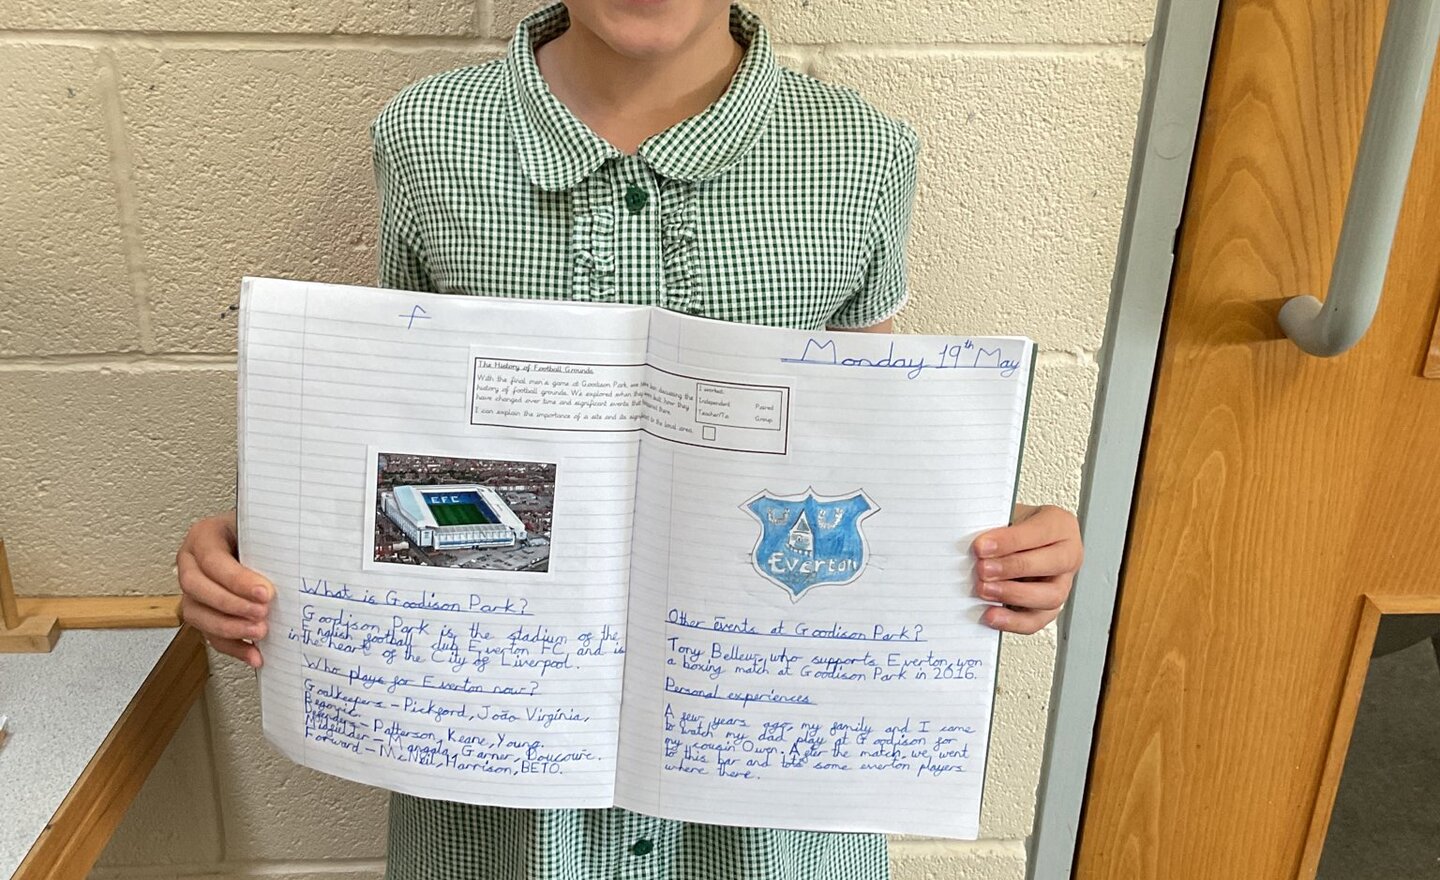 f
The History of Football Grounds
With the final men's game at Goodison Park, we have been discussing the
history of football grounds. We explored when they were built, how they
have changed over time and significant events that happened there.
I can explain the importance of a site and its significance to the local area.
I worked:
Independent Paired
Teacher/Ta Group
EFC
What is Goodison Park?
Goodison Park is the stadium of the
English football club Everton FC, and is
in the heart of the City of Liverpool.
Who plays for Everton now?
Goalkeepers – Pickford, João Virgínia,
Begovic.
Defenders – Patterson, Keane, Young.
Midfielder – Mangala, Garner, Doucoure.
Forward – McNeil, Harrison, BETO.
Monday 19th May
Everton
Other events at Goodison Park?
Tony Bellew, who supports Everton, won
a boxing match at Goodison Park in 2016.
Personal experiences
A few years ago, my family and I came
to watch my dad play at Goodison for
my cousin Owen. After the match, we went
to this bar and lots some everton players
where there.